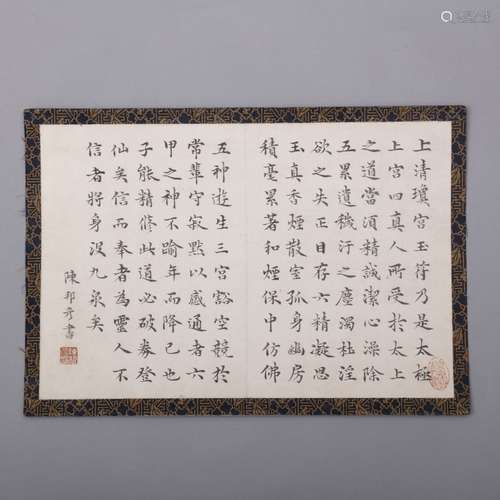 上清瓊宮玉符乃是太極
上宮四真人所受於太上
之道當須精誠潔心澡除
五累遺穢汙之塵濁杜淫
欲之失正目存六精凝思
玉真香煙散室孤身幽房
積毫累著和煙保中仿佛
五神遊生三宮豁空競於
常輩守寂默以感通者六
甲之神不踰年而降己也
子能精修此道必破券登
仙矣信而奉者為靈人不
信者將身沒九泉矣
陳邦彥書